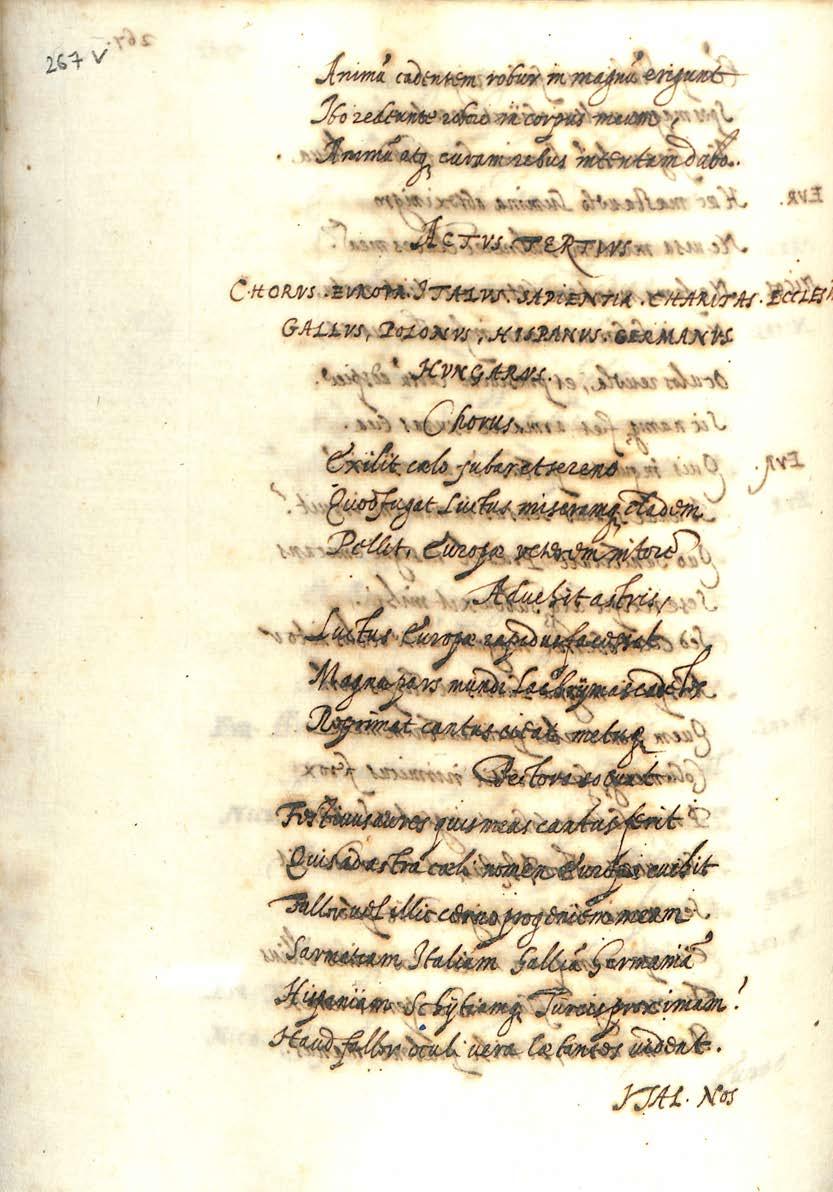 267 v
Animũ cadentem robur in magnũ erigunt
Ibo redeunte robore in corpus meum
Animũ atq curam rebus intentam dabo.
ACTVS TERTIVS
CHORVS. EVROPA. ITALVS. SAPIENTIA. CHARITAS. ECCLESIA
GALLVS, POLONVS, HISPANVS. GERMANVS
HVNGARVS.
Chorus.
Exilit cælo jubar et sereno
Quod fugat Luctus miseramq cladem
Pellit, Europæ veterem nitorẽ
Aduehit astris,
Luctus Europæ rapidus facessat
Magna pars mundi Lachrymas
Reprimat cantus cieat metuq
Pectora
Festiuus aures quis meas cantus ferit
Quis ad astra cæli nomen Europæ euehit
Fallor uel illic cerno progeniem meam
Sarmatiam Italiam Galliã Germaniã
Hispaniam Schytiamq Turcis proximam?
Haud fallor oculi vera lætantes vident.
ITAL. Nos